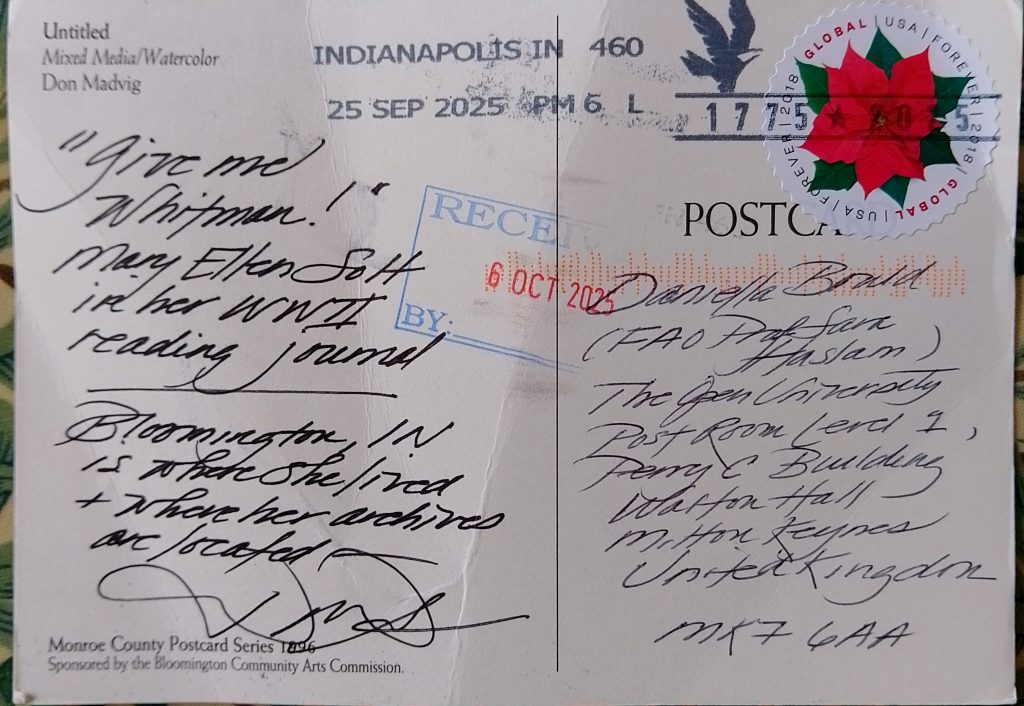 Untitled
Mixed Media/Watercolor
Don Madvig
INDIANAPOLIS IN 460
25 SEP 2025 PM 6 L
1775 ★ 2025
GLOBAL | USA | FOREVER | 2018
GLOBAL | USA | FOREVER | 2018
POSTCARD
RECEIV
6 OCT 2025
BY:
"Give me
Whitman!"
Mary Ellen Solt
in her WWII
reading journal
Bloomington, IN
is where she lived
+ where her archives
are located
Monroe County Postcard Series 1996
Sponsored by the Bloomington Community Arts Commission.
Daniella Bould
(FAO Prof Sara
Haslam)
The Open University
Post Room Level 1,
Perry C Building
Walton Hall
Milton Keynes
United Kingdom
MK7 6AA